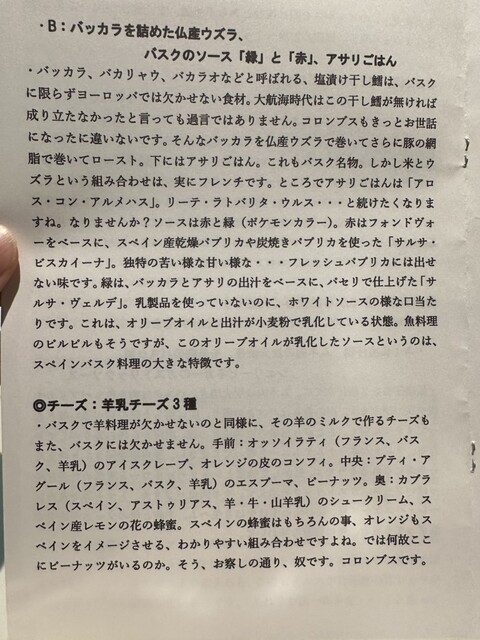 ・B：バッカラを詰めた仏産ウズラ、
バスクのソース「緑」と「赤」、アサリごはん
・バッカラ、バカリャウ、バカラオなどと呼ばれる、塩漬け干し鱈は、バスク
に限らずヨーロッパでは欠かせない食材。大航海時代はこの干し鱈が無ければ
成り立たなかったと言っても過言ではありません。コロンブスもきっとお世話
になったに違いないです。そんなバッカラを仏産ウズラで巻いてさらに豚の網
脂で巻いてロースト。下にはアサリごはん。これもバスク名物。しかし米とウ
ズラという組み合わせは、実にフレンチです。ところでアサリごはんは「アロ
ス・コン・アルメハス」。リーテ・ラトバリタ・ウルス・・・と続けたくなりま
すね。なりませんか？ソースは赤と緑（ポケモンカラー）。赤はフォンドヴォ
ーをベースに、スペイン産乾燥パプリカや炭焼きパプリカを使った「サルサ・
ビスカイーナ」。独特の苦い様な甘い様な・・・フレッシュパプリカには出せ
ない味です。緑は、バッカラとアサリの出汁をベースに、パセリで仕上げた「サ
ルサ・ヴェルデ」。乳製品を使っていないのに、ホワイトソースの様な口当た
りです。これは、オリーブオイルと出汁が小麦粉で乳化している状態。魚料理
のピルピルもそうですが、このオリーブオイルが乳化したソースというのは、
スペインバスク料理の大きな特徴です。
◎チーズ：羊乳チーズ3種
・バスクで羊料理が欠かせないのと同様に、その羊のミルクで作るチーズも
また、バスクには欠かせません。手前：オッソイラティ（フランス、バス
ク、羊乳）のアイスクレープ、オレンジの皮のコンフィ。中央：プティ・ア
グール（フランス、バスク、羊乳）のエスプーマ、ピーナッツ。奥：カブラ
レス（スペイン、アストゥリアス、羊・牛・山羊乳）のシュークリーム、ス
ペイン産レモンの花の蜂蜜。スペインの蜂蜜はもちろんの事、オレンジもス
ペインをイメージさせる、わかりやすい組み合わせですよね。では何故ここ
にピーナッツがいるのか。そう、お察しの通り、奴です。コロンブスです。